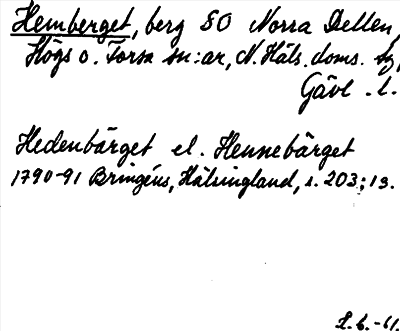 Hemberget, berg SO Norra Dellen,
Högs o. Forsa sn:ar, N. Häls. doms. hg,
Gävl. l.
Hedenbärget el. Hennebärget
1790-91 Bringéus, Hälsingland, s. 203; 13.
L.b.-61.